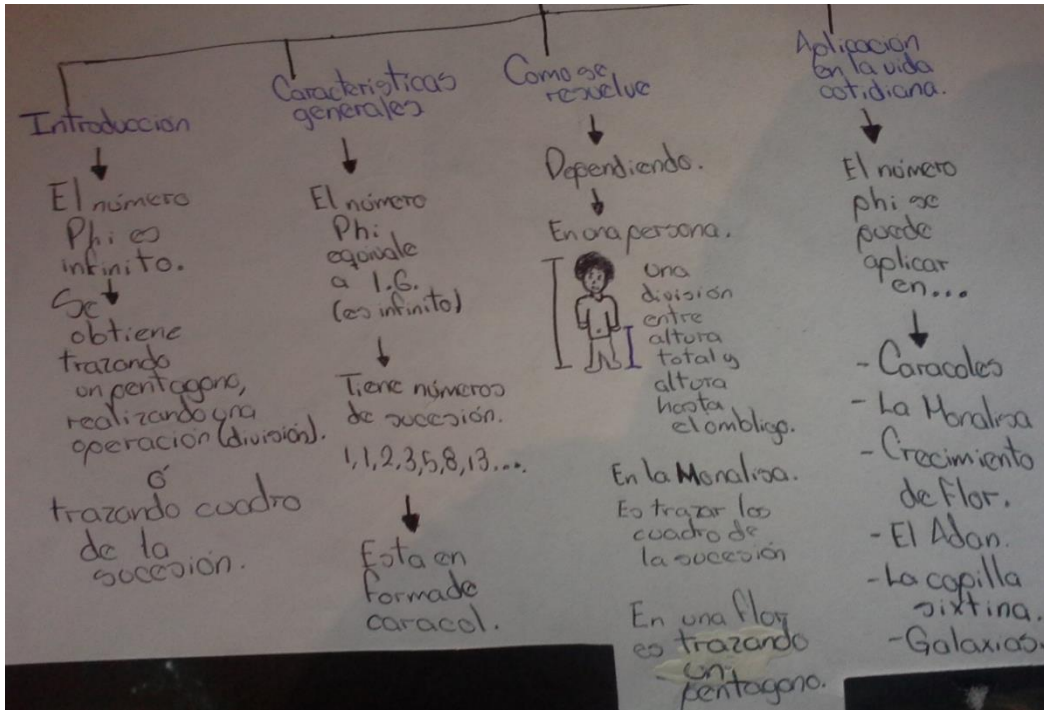 Introduccion
El número
Phi es
infinito.
Se
obtiene
trazando
un pentagono,
realizando una
operación (división).
ó
trazando cuadro
de la
sucesión.
Caracteristicas
generales
El número
Phi
equivale
a 1.6.
(es infinito)
Tiene números
de sucesión.
1,1,2,3,5,8,13....
Esta en
forma de
caracol.
Como se
resuelve
Dependiendo.
En una persona.
una
división
entre
altura
total y
altura
hasta
el ombligo.
En la Monalisa.
Es trazar los
cuadro de
la sucesión
En una flor
es trazando
un
pentagono.
Aplicacion
en la vida
cotidiana.
El número
phi se
puede
aplicar
en...
- Caracoles
- La Monalisa
- Crecimiento
de flor.
- El Adan.
- La capilla
sixtina.
- Galaxias.